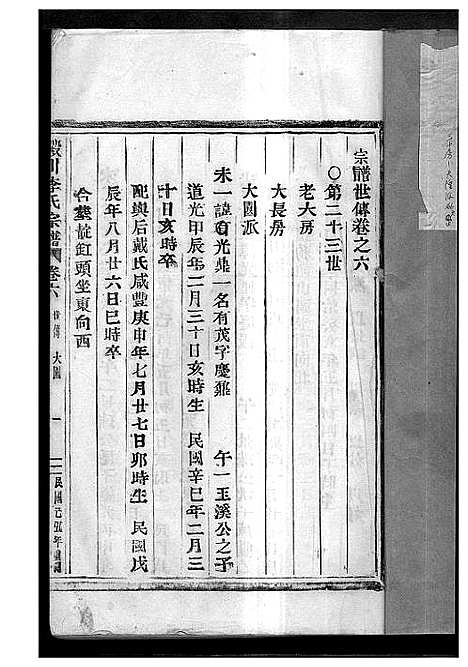 宗譜世傳卷之六
○第二十三世
老大房
大長房
大園派
未一諱有光鼎一名有茂字慶鼎 午一玉溪公之子
道光甲辰年二月三十日亥時生 民國辛巳年二月三
十日亥時卒
配與后戴氏咸豐庚申年七月廿七日卯時生 民國戊
辰年八月廿六日巳時卒
合塟釭頭坐東向西
李氏宗譜 卷六 世傳 大園 一